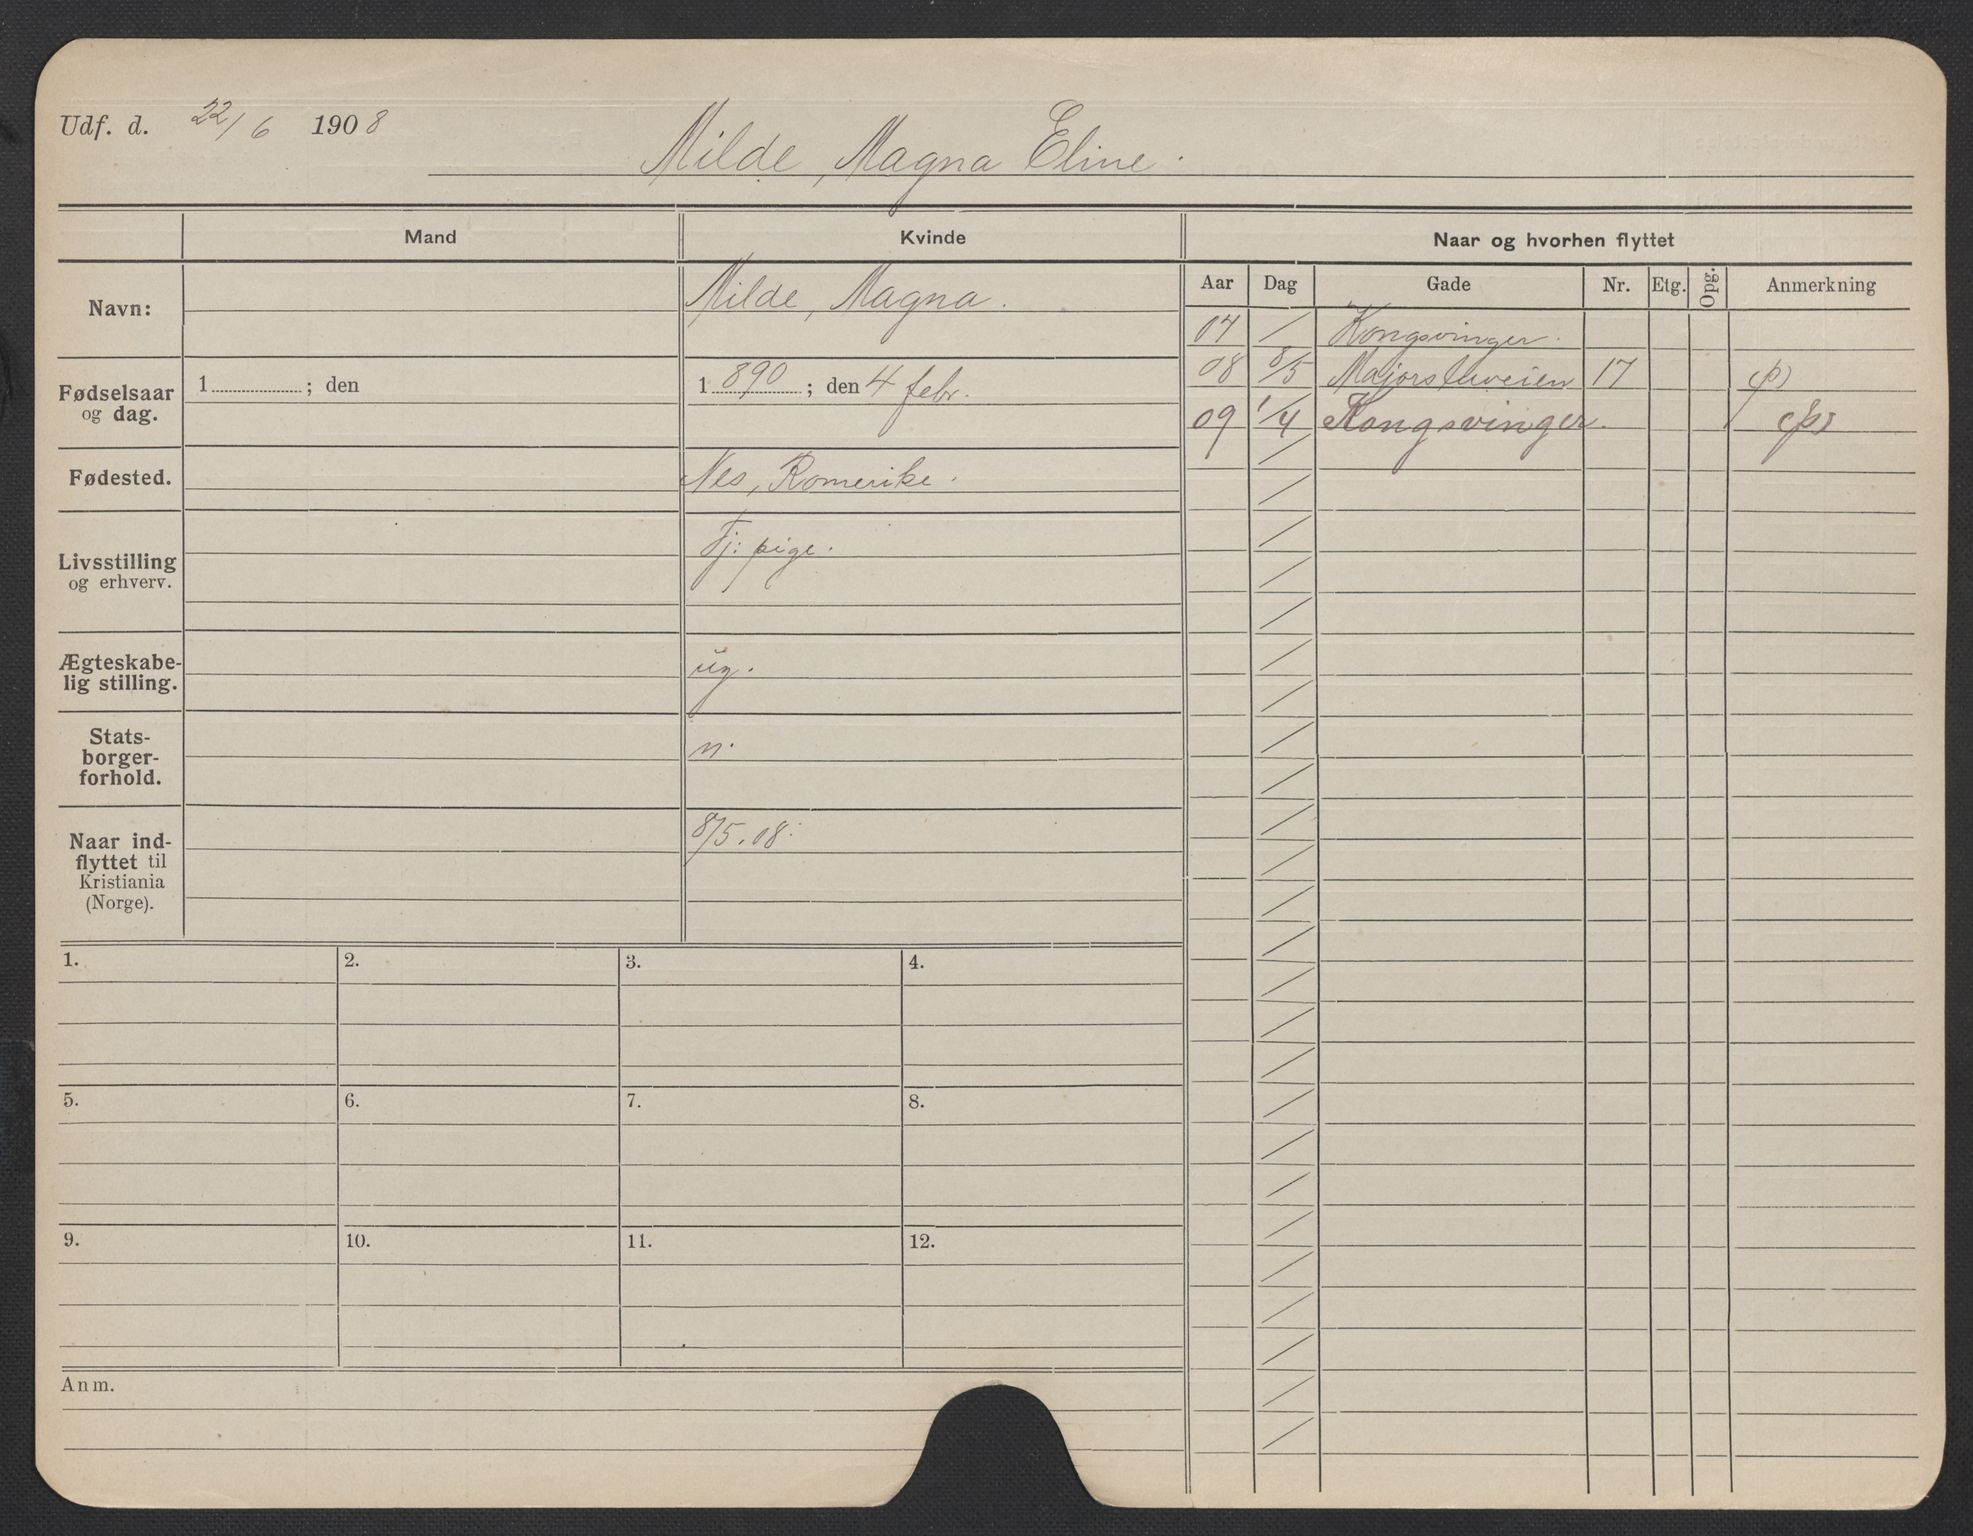 Udf. d. 22/6 1908
Milde, Magna Eline.
Mand Kvinde Naar og hvorhen flyttet
Navn: Milde, Magna.
Fødselsaar og dag. 1 ; den 1 890 ; den 4 febr.
Fødested. Nes, Romerike.
Livsstilling og erhverv. Tj: pige.
Ægteskabe-
lig stilling. ug.
Stats-
borger-
forhold. n.
Naar ind-
flyttet til
Kristiania
(Norge). 8/5.08.
Aar Dag Gade Nr. Etg. Opg. Anmerkning
04 / Kongsvinger.
08 8/5 Majorstuveien 17 (p)
09 1/4 Kongsvinger. (ps)
1. 2. 3. 4.
5. 6. 7. 8.
9. 10. 11. 12.
Anm.